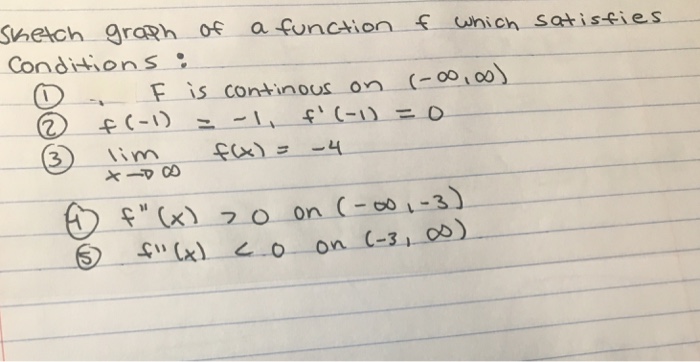 Sketch graph of a function f which satisfies
Conditions:
① . F is continous on (-∞,∞)
② f(-1) = -1, f'(-1) = 0
③ lim f(x) = -4
x→∞
④ f''(x) > 0 on (-∞,-3)
⑤ f''(x) < 0 on (-3, ∞)